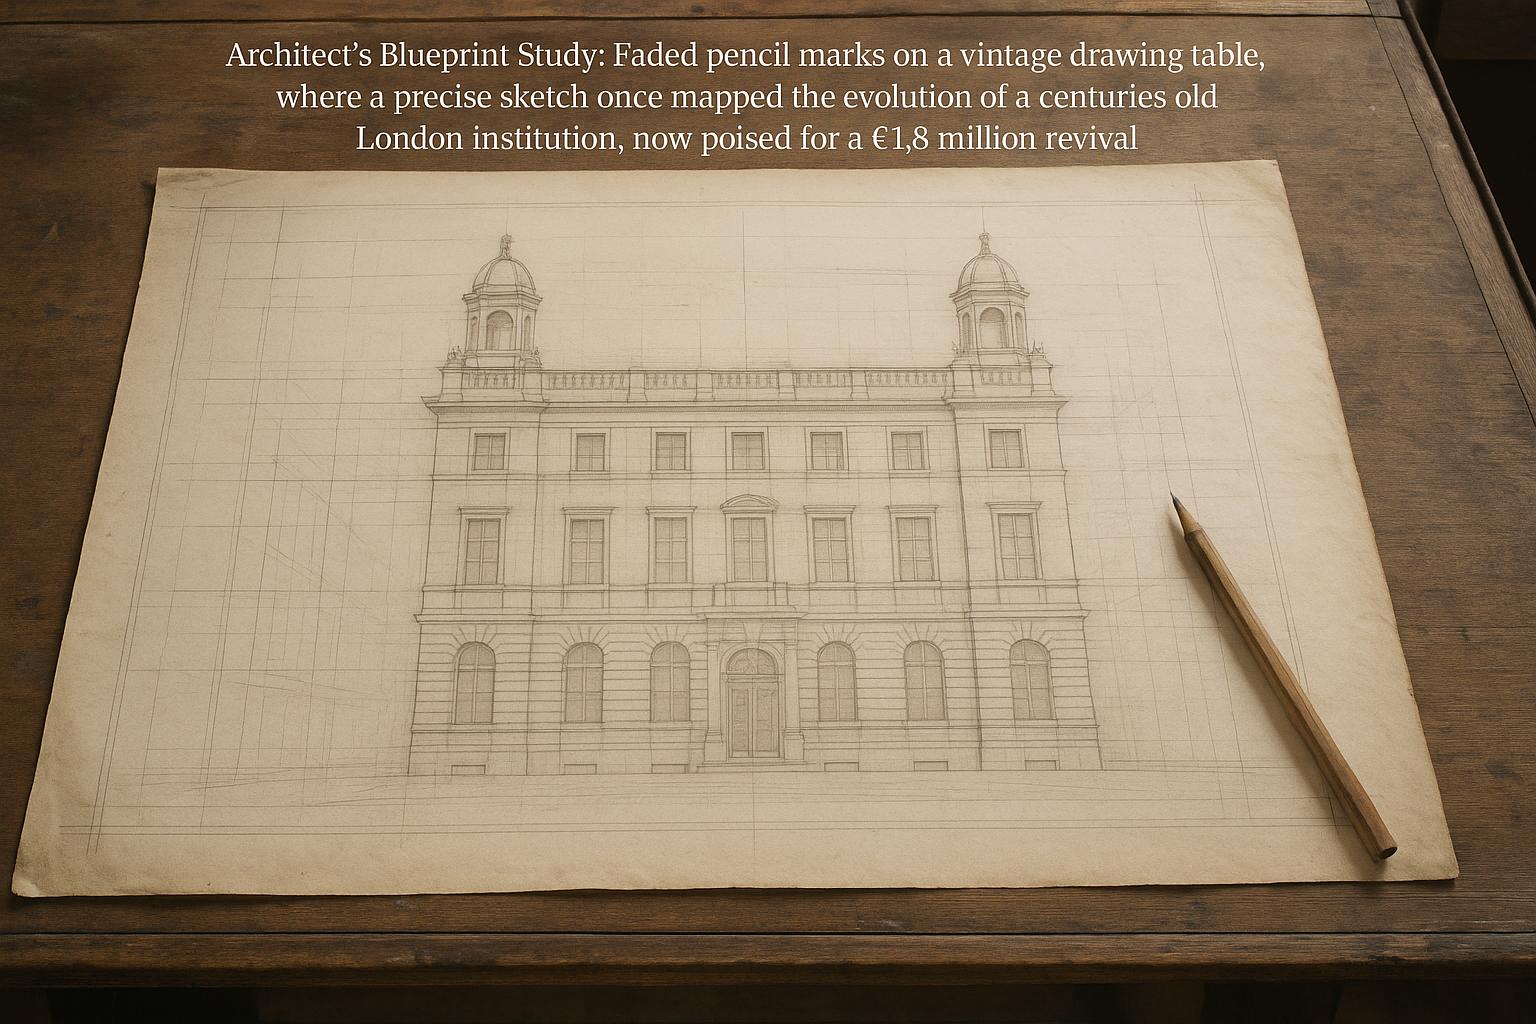 Architect’s Blueprint Study: Faded pencil marks on a vintage drawing table,
where a precise sketch once mapped the evolution of a centuries old
London institution, now poised for a €1,8 million revival